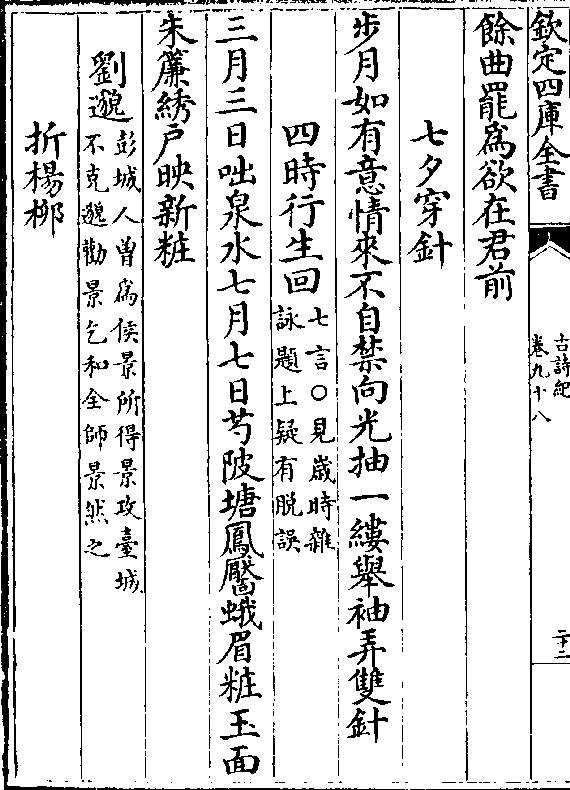 欽定四庫全書
古詩紀
卷九十八
二十二
餘曲罷為欲在君前
七夕穿針
步月如有意情來不自禁向光抽一縷舉袖弄雙針
四時行生回
七言○見歲時雜
詠題上疑有脫誤
三月三日咄泉水七月七日芍陂塘鳳靨蛾眉粧玉面
朱簾綉戶映新粧
劉邈
彭城人曽為侯景所得景攻臺城
不克邈勸景乞和全師景然之
折楊栁